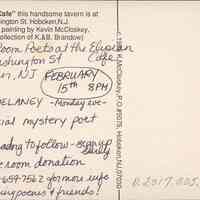 Cafe" this handsome tavern is at
ington St. Hoboken, N.J.
painting by Kevin McCloskey,
ollection of K.&B. Brandow)
room Poets at the Elysian
ashington St Cafe
n, NJ FEBRUARY
15th 8PM
DELANEY - Monday eve -
cial mystery poet
ading to follow - sign up
early
room donation
659-7562 for more info
funpoems & friends!
McCloskey, P.O. #5075, Hoboken, NJ, 07030